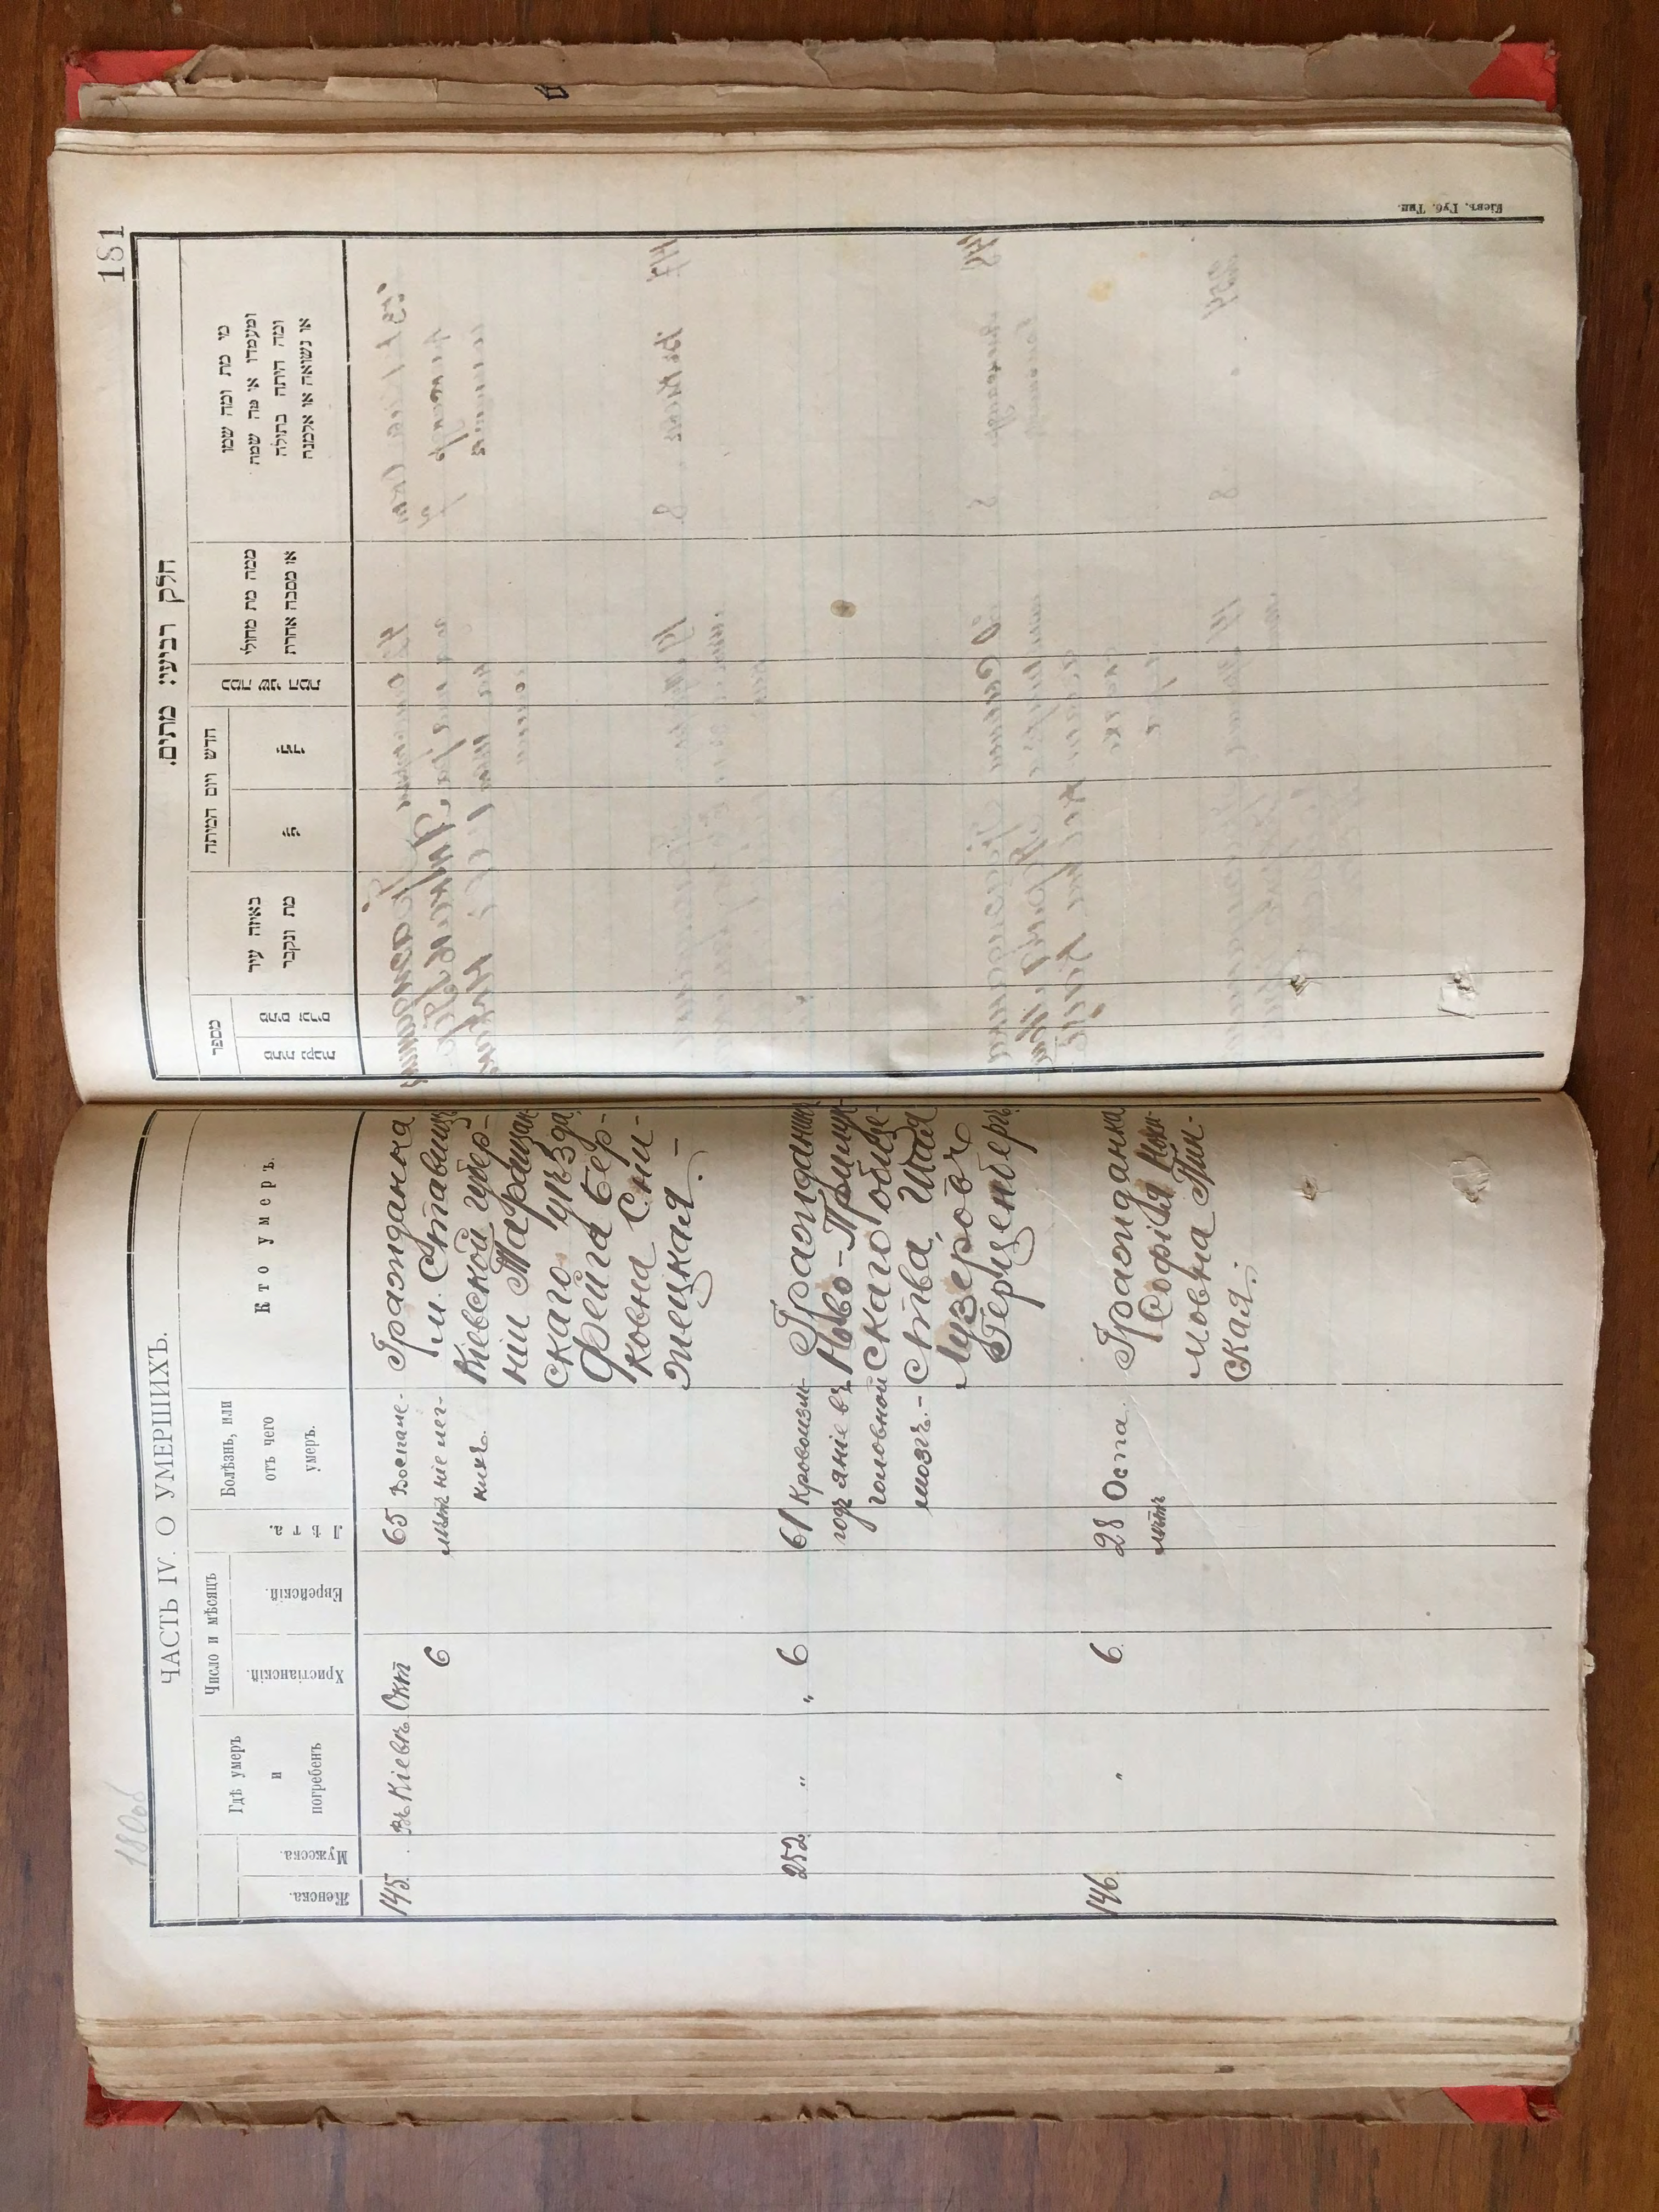 180об
ЧАСТЬ IV. О УМЕРШИХЪ.
Женска.
Мужеска.
Гдѣ умеръ
и
погребенъ
Число и мѣсяцъ
Христіанскій.
Еврейскій.
Лѣта.
Болѣзнь, или
отъ чего
умеръ.
Кто умеръ.
145.
въ Кіевѣ
Окт
6
65
лѣтъ
Воспале-
ніе лег-
кихъ.
Гражданка
м. Ставищъ
Кіевской губер-
ніи Таращан-
скаго уѣзда
Фейга Бер-
ковна Сни-
жецкая. –
252
"
" 6
61
годъ
Кровоизлі-
яніе въ
головной
мозгъ. –
Гражданинъ
Ново-Прилук-
скаго обще-
ства, Шая
Лузеровъ
Герценберъ
146
"
6
28
лѣтъ
Оспа.
Гражданка
Софія
мовна Пин-
ская.
181
חלק רביעי: מתים.
מספר
מתים זכרים
מתות נקבות
באיזה עיר
מת ונקבר
חדש ויום המיתה
כמה שני המת
ממה מת מחולי
או מסבה אחרת
מי מת ומה שמו
ומעמדו או מה שמה
ומה היתה בתולה
או נשואה או אלמנה
Кіевъ. Губ. Тип.